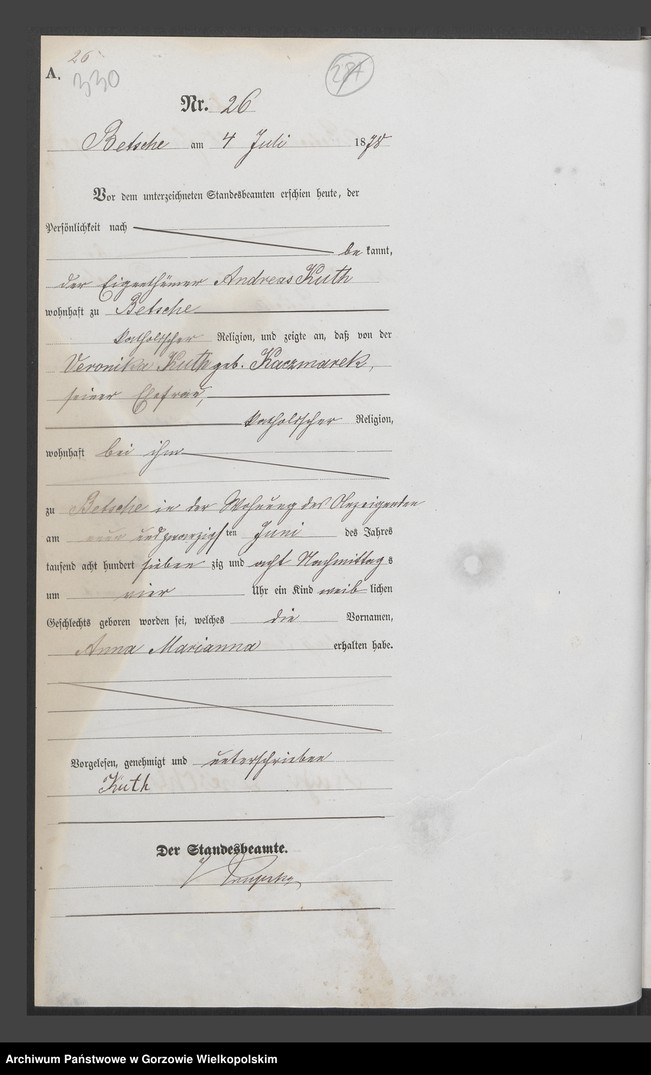 26
A.
330
Nr. 26
Betsche am 4 Juli 1878
Vor dem unterzeichneten Standesbeamten erschien heute, der
Persönlichkeit nach
be kannt,
der Eigenthümer Andreas Kuth
wohnhaft zu Betsche
katholischer Religion, und zeigte an, daß von der
Veronika Kuth geb. Kaczmarek,
seiner Ehefrau,
katholischer Religion,
wohnhaft bei ihm
zu Betsche in der Wohnung des Anzeigenden
am und zwanzigs ten Juni des Jahres
tausend acht hundert sieben zig und acht Nachmittag s
um vier Uhr ein Kind weib lichen
Geschlechts geboren worden sei, welches die Vornamen,
Anna Marianna erhalten habe.
Vorgelesen, genehmigt und unterschrieben
Kuth
Der Standesbeamte.
Archiwum Państwowe w Gorzowie Wielkopolskim